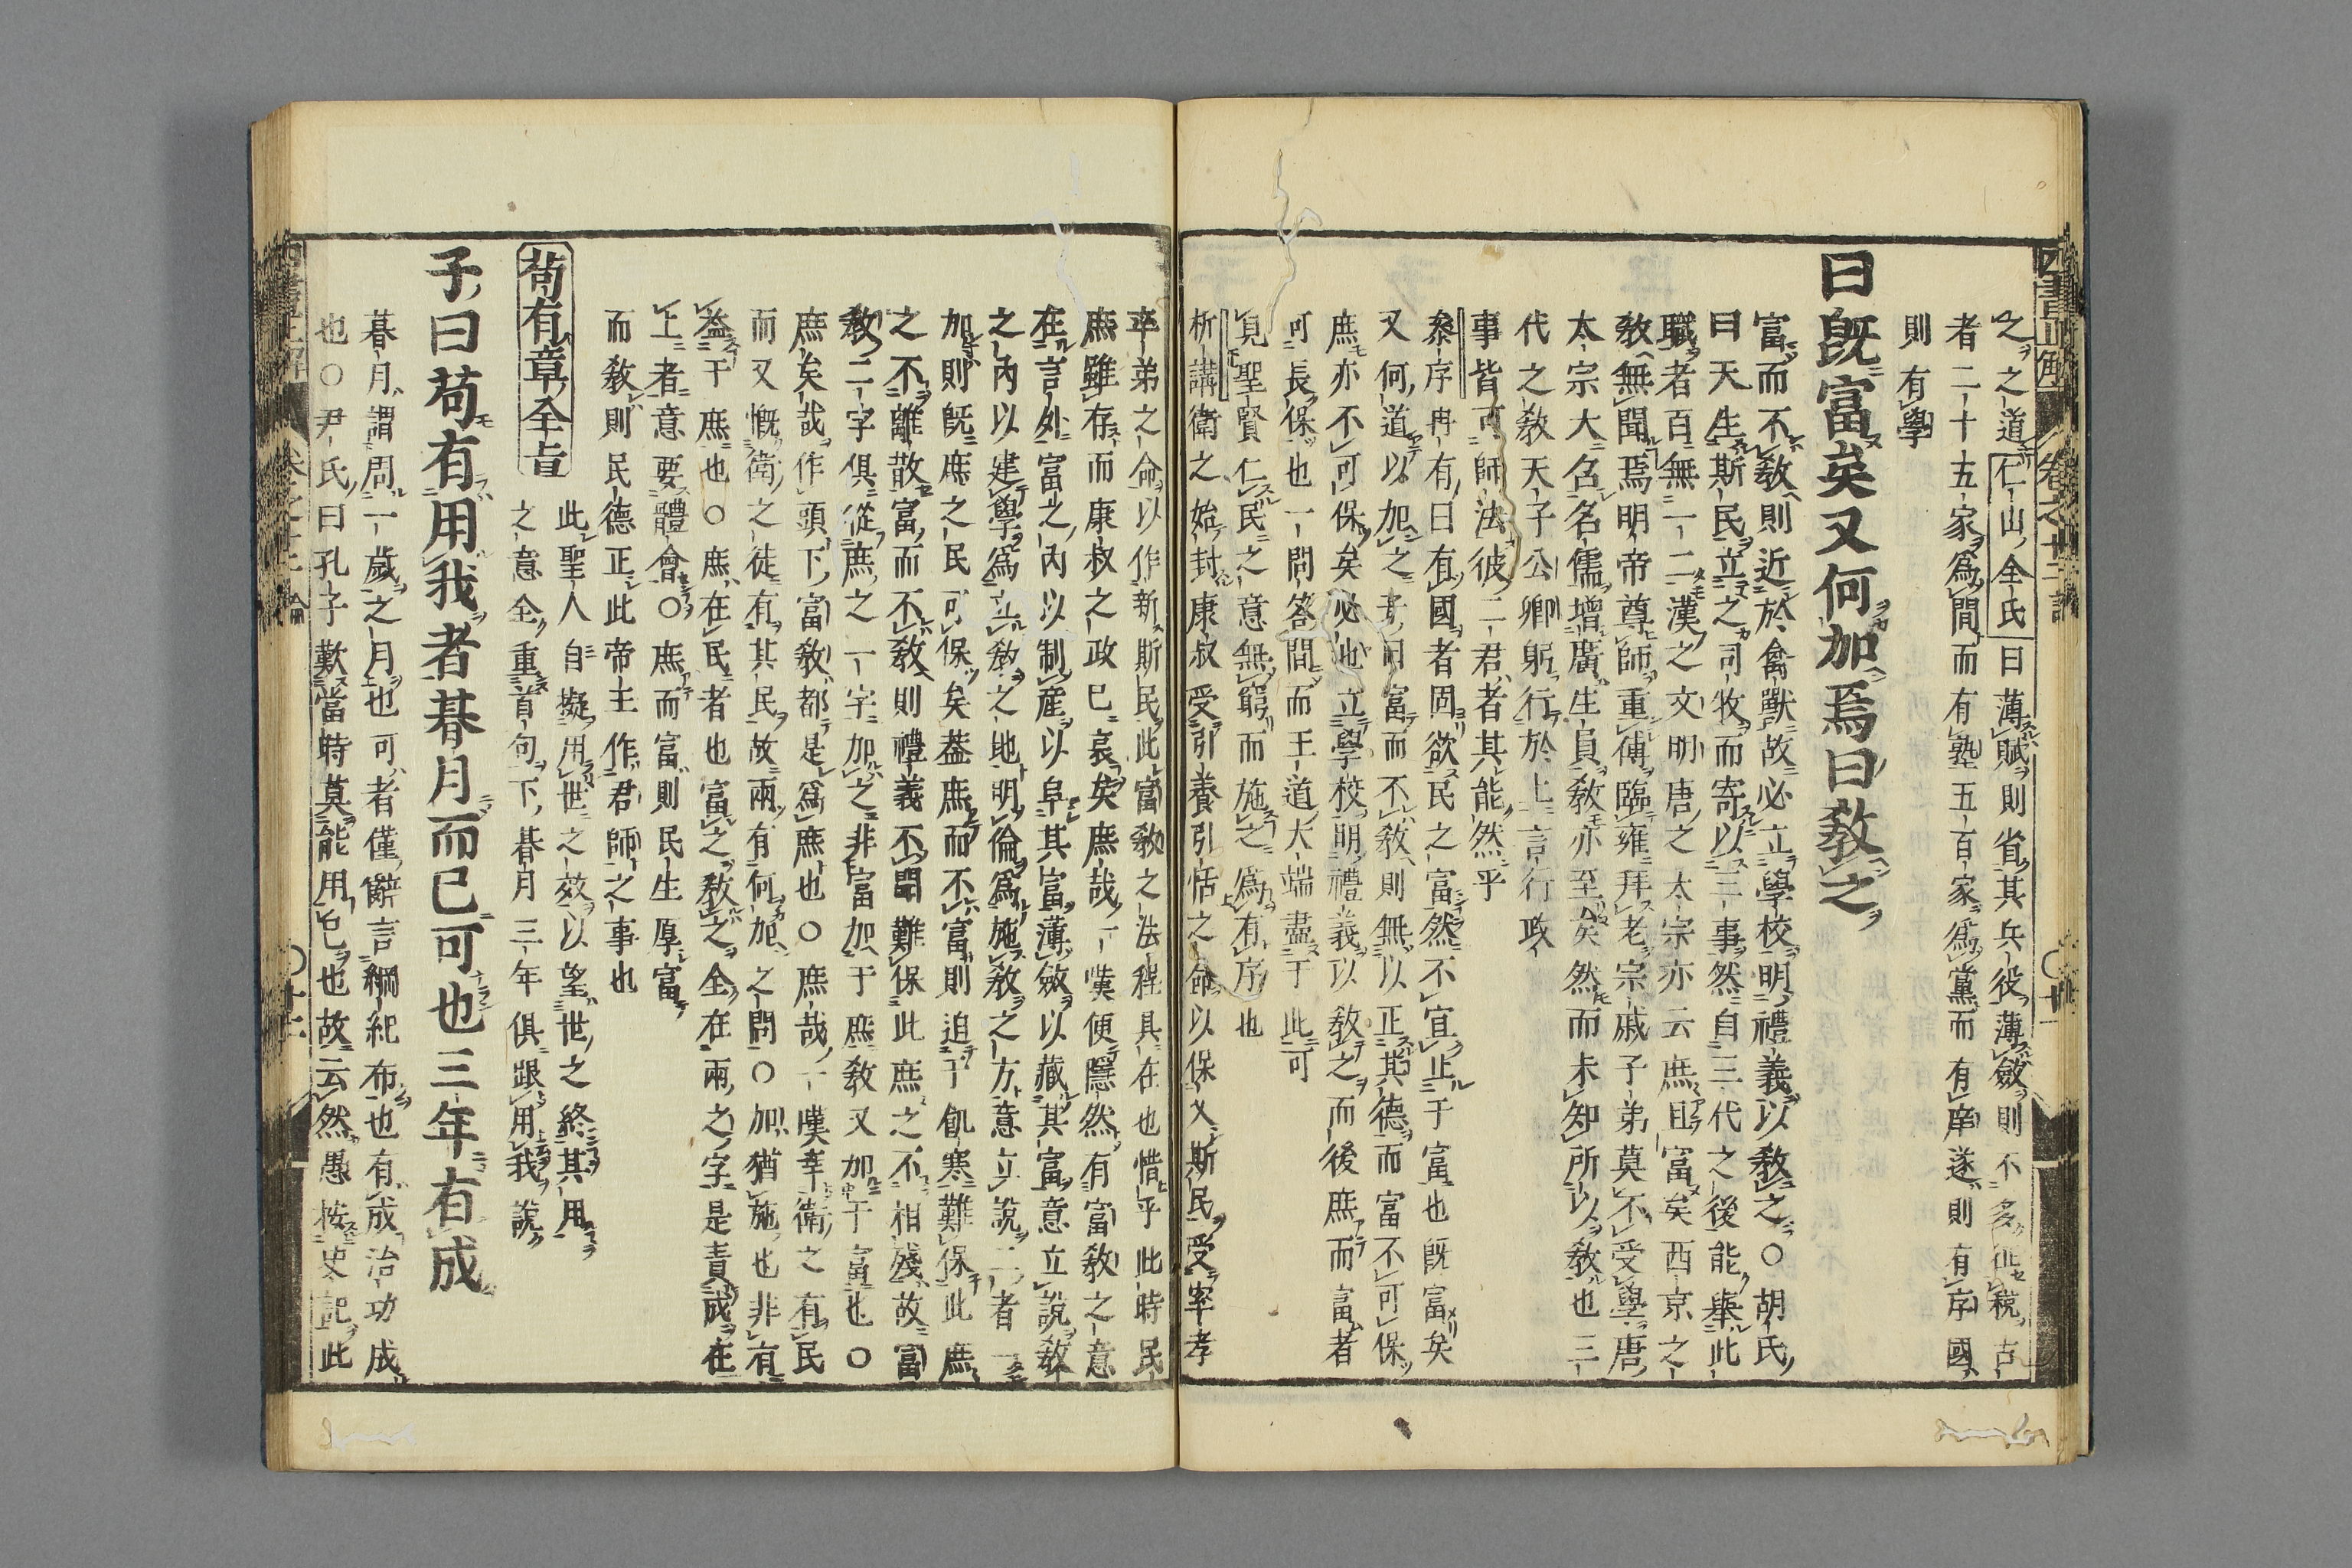 之之道仁山全氏曰薄賦則省其兵役薄斂則不多征稅古
者二十五家爲閭而有塾五百家爲黨而有庠遂則有序國
則有學
曰既富矣又何加焉曰教之
富而不教則近於禽獸故必立學校明禮義以教之○胡氏
曰天生斯民立之司牧而寄以三事然自三代之後能舉此
職者百無一二漢之文明唐之太宗亦云庶且富矣西京之
教無聞焉明帝尊師重傅臨雍拜老宗戚子弟莫不受學唐
太宗大召名儒增廣生員教亦至矣然而未知所以教也三
代之教天子公卿躬行於上言行政
事皆可師法彼二君者其能然乎
參序冉有曰有國者固欲民之富然不宜止于富也既富矣
又何道以加之子曰富而不教則無以正其德而富不可保
庶亦不可保矣必也立學校明禮義以教之而後庶而富者
可長保也一問答間而王道大端盡于此可
見聖賢仁民之意無窮而施之爲有序也
析講衛之始封康叔受引養引恬之命以保乂斯民受率孝
卒弟之命以作新斯民此富教之法程具在也惜乎此時民
庶雖存而康叔之政已衰矣庶哉一嘆便隱然有富教之意
在言外富之內以制產以阜其富薄斂以藏其富意立說教
之內以建學爲立教之地明倫爲施教之方意立說二者一
加則既庶之民可保矣蓋庶而不富則迫于飢寒難保此庶
之不離散富而不教則禮義不聞難保此庶之不相殘故富
教二字俱從庶之一字加之非富加于庶教又加于富也○
庶矣哉作頭下富教都是爲庶也○庶哉一嘆幸衛之有民
而又慨衛之徒有其民故兩有何加之問○加猶施也非有
益于庶也○庶在民者也富之教之全在兩之字是責成在
上者意要體會○庶而富則民生厚富
而教則民德正此帝王作君師之事也
苟有章全旨
此聖人自擬用世之效以望世之終其用
之意全重首句下朞月三年俱跟用我說
子曰苟有用我者朞月而已可也三年有成
朞月謂周一歲之月也可者僅辭言綱紀布也有成治功成
也○尹氏曰孔子歎當時莫能用己也故云然愚按史記此